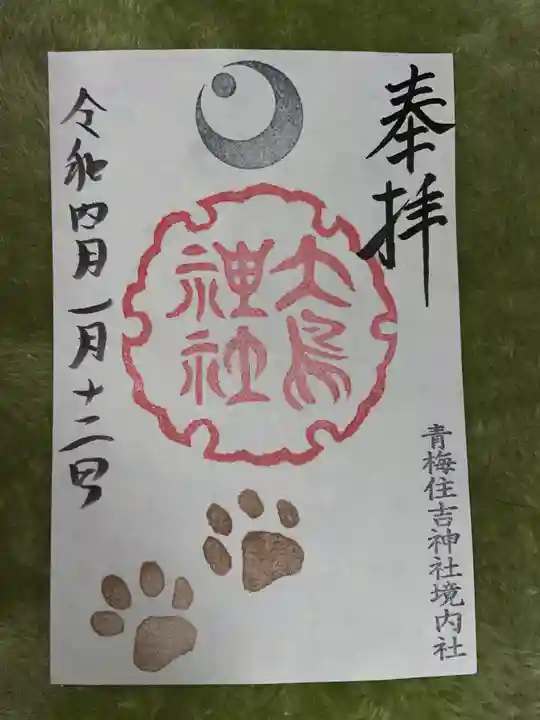 奉拝
大鳥
神社
青梅住吉神社境内社
令和四月一月十二日